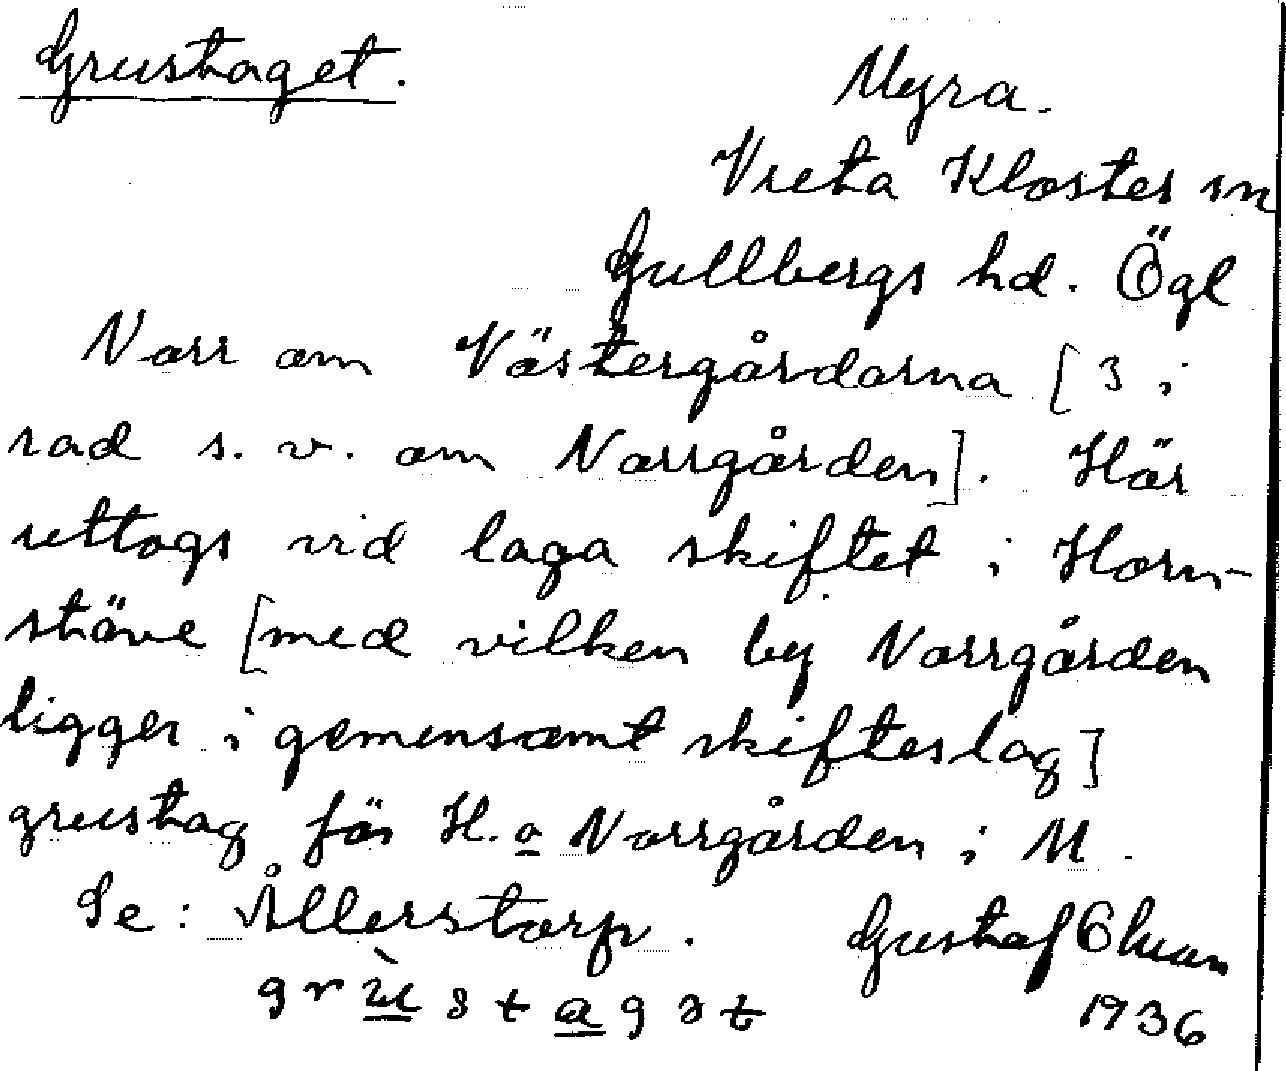 Grustaget.
Myra.
Vreta Kloster sn
Gullbergs hd. Ögl
Norr om Västergårdarna [3 i
rad s. v. om Norrgården]. Här
uttogs vid laga skiftet i Horn-
stäve [med vilken by Norrgården
ligger i gemensamt skifteslag]
grustag för H. o Norrgården i M.
Se: Ållerstorp. Gustaf
grùstagət
1936